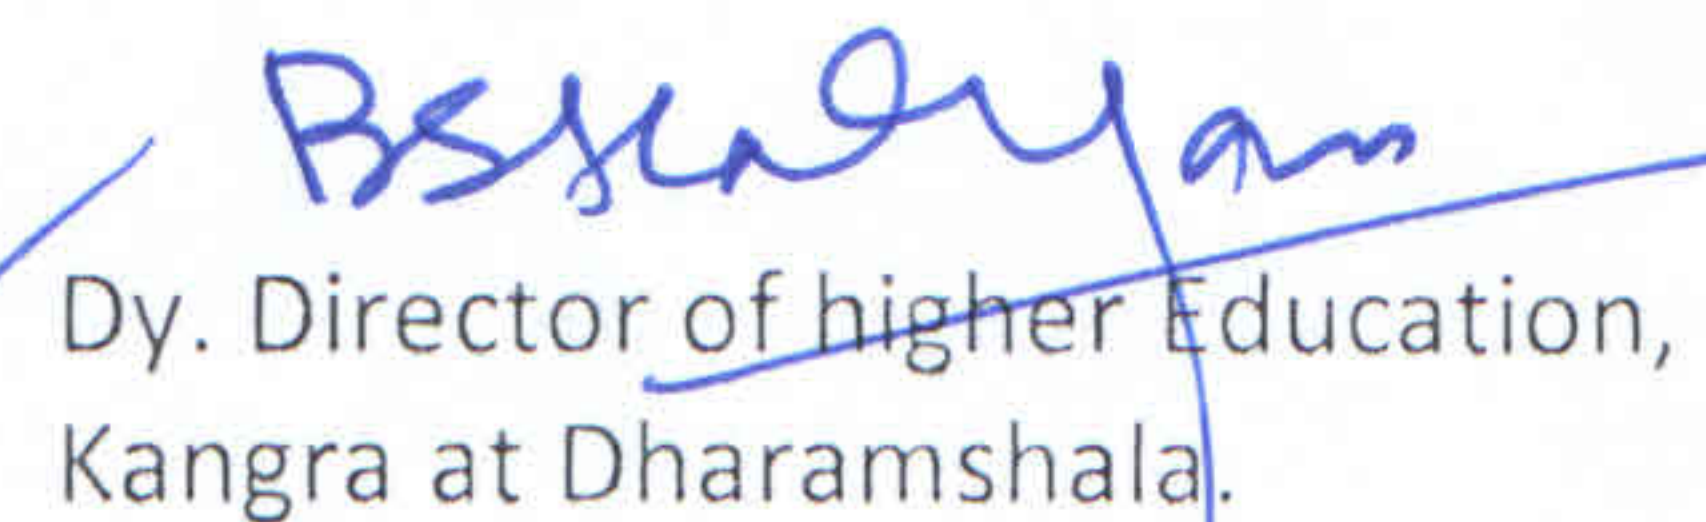 Dy. Director of higher Education,
Kangra at Dharamshala.